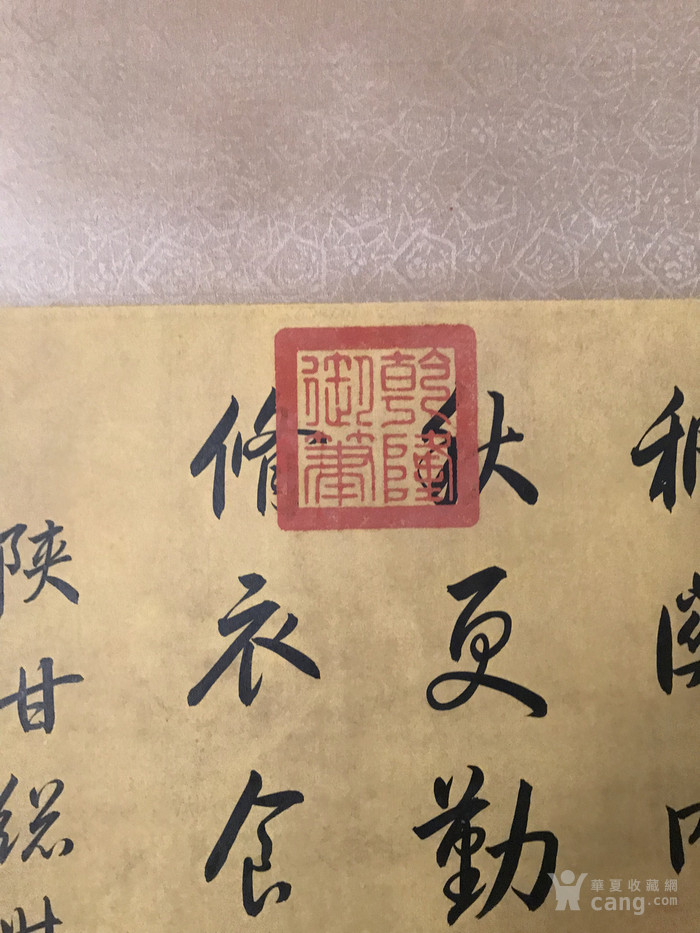 乾隆
御筆
更勤
修衣食
陝甘総
華夏收藏網
cang.com